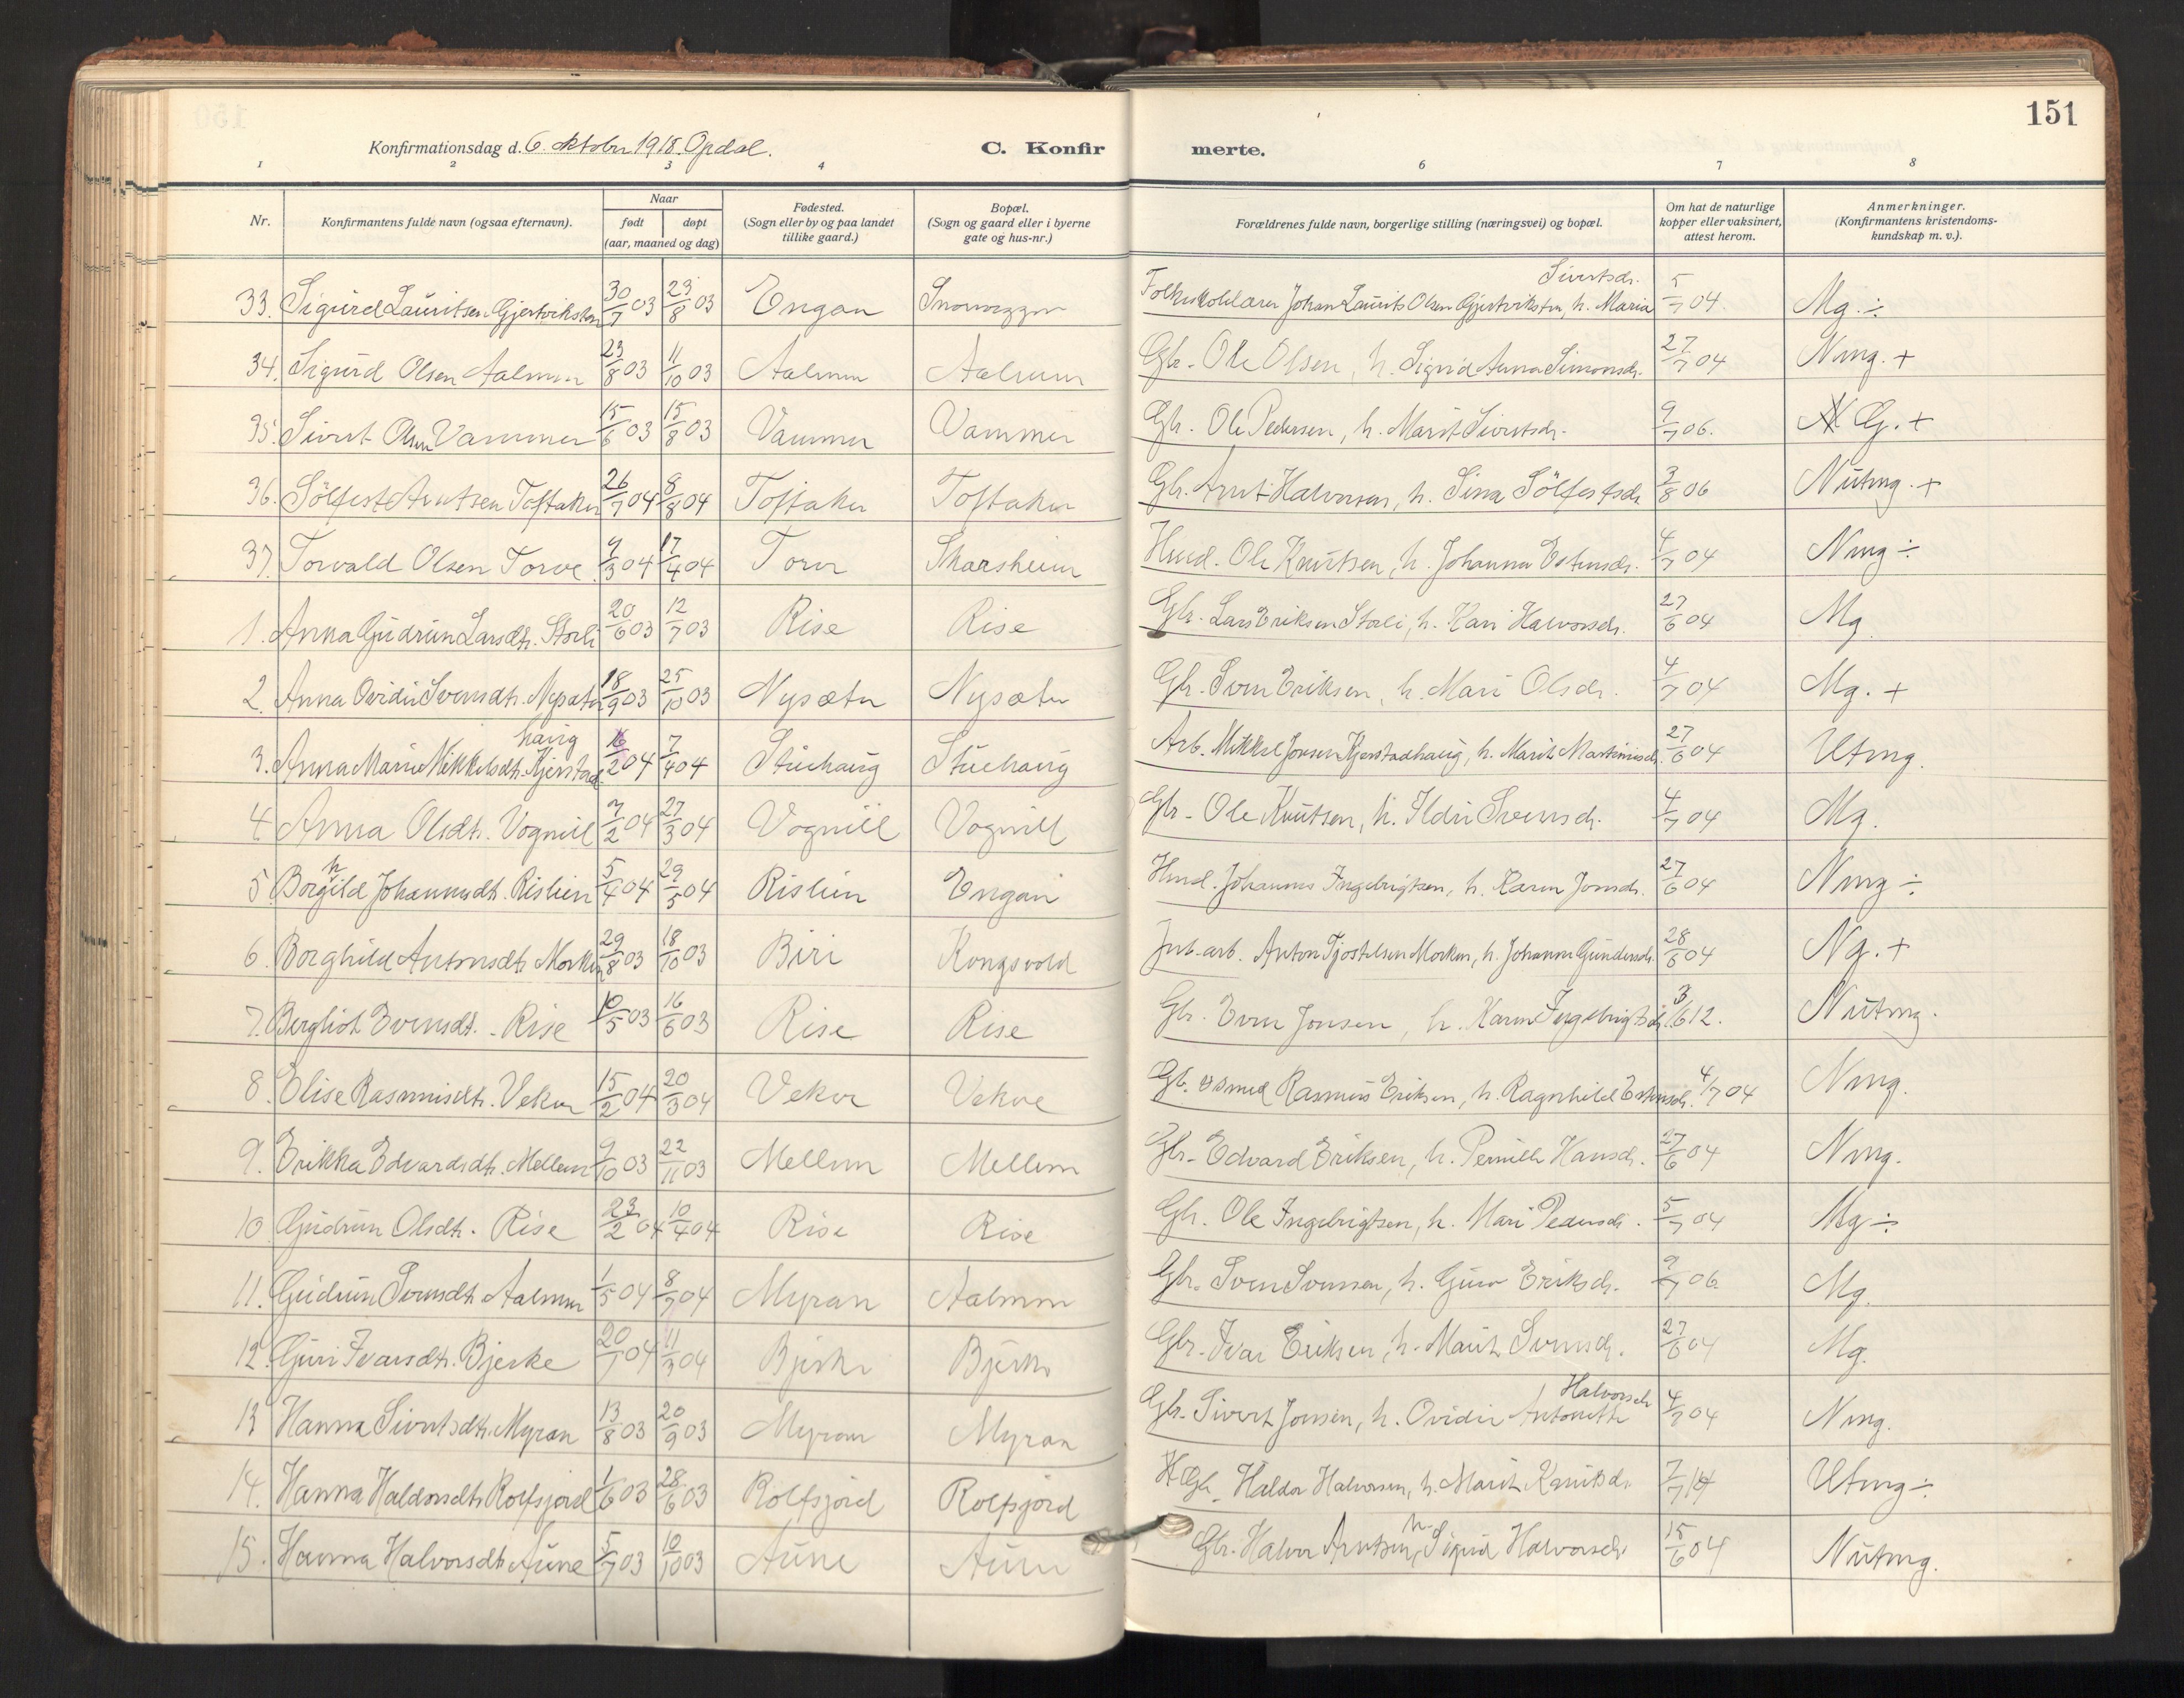 151
Konfirmationsdag d. 6. oktober 1918. Opdal.
C. Konfirmerte.
1 2 3 4 6 7 8
Nr. | Konfirmantens fulde navn (ogsaa efternavn). | Naar født | døpt (aar, maaned og dag) | Fødested. (Sogn eller by og paa landet tillike gaard.) | Bopæl. (Sogn og gaard eller i byerne gate og hus-nr.) | Forældrenes fulde navn, borgerlige stilling (næringsvei) og bopæl. | Om hat de naturlige kopper eller vaksinert, attest herom. | Anmerkninger. (Konfirmantens kristendomskundskap m. v.).
33. Sigurd Lauritsen Gjertviksten 30/7 03 23/8 03 Engan Folkeskolelærer Johan Laurits Olsen Gjertviksten, h. Maria Sivertsdr. 5/7 04. Mg. ÷
34. Sigurd Olsen Aalmen 23/8 03 11/10 03 Aalmen Aalmen Gbr. Ole Olsen, h. Sigrid Anna Simonsdr. 27/7 04 Nmg. +
35. Sivert Olsen Vammer 15/6 03 15/8 03 Vammer Vammer Gbr. Ole Pedersen, h. Marit Sivertsdr. 9/7 06. G. +
36. Sölfest Arntsen Toftaker 26/7 04 8/8 04 Toftaker Toftaker Gbr. Arnt Halvorsen, h. Sina Sölfestsdr 3/8 06 Nutmg. +
37. Torvald Olsen Torve 9/3 04 17/4 04 Torve Skarsheim Hmd. Ole Knutsen, h. Johanna Estensdr. 4/7 04 Nmg ÷
1. Anna Gudrun Larsdtr. Storli 20/6 03 12/7 03 Rise Rise Gbr. Lars Eriksen Storli, h. Kari Halvorsdr. 27/6 04 Mg
2. Anna Ovidie Svensdtr. Nysæter 18/9 03 25/10 03 Nysæter Nysæter Gbr. Sven Eriksen, h. Mari Olsdr. 4/7 04 Mg. +
3. Anna Marie Mikkelsdtr. Kjerstadhaug 16/2 04 7/4 04 Stuehaug Stuehaug Arb. Mikkel Jonsen Kjerstadhaug, h. Marit Martinusdr. 27/6 04 Utmg.
4. Anna Olsdtr. Vognill 7/2 04 27/3 04 Vognill Vognill Gbr. Ole Knutsen, h. Ildri Svensdr. 4/7 04 Mg.
5. Borghild Johannesdtr. Rislien 5/4 04 29/5 04 Rislien Engan Hmd. Johannes Ingebrigtsen, h. Karen Jonsdr. 27/6 04 Nmg ÷
6. Borghild Antonsdtr. Morken 29/8 03 18/10 03 Biri Kongsvold Jnb-arb. Anton Tjostelsen Morken, h. Johanne Gundersdr. 28/6 04 Ng. +
7. Bergliot Evensdt. Rise 10/5 03 16/6 03 Rise Rise Gbr. Even Jonsen, h. Karen Ingebrigtsdr. 3/6 12. Nutmg.
8. Elise Rasmusdtr. Vekve 15/2 04 20/3 04 Vekve Vekve Gb. & smed Rasmus Eriksen, h. Ragnhild Estensdr. 4/7 04 Nmg.
9. Erikka Edvardsdtr. Mellem 9/10 03 22/11 03 Mellem Mellem Gbr. Edvard Eriksen, h. Pernille Hansdr. 27/6 04 Nmg.
10 Gudrun Olsdtr. Rise 23/2 04 10/4 04 Rise Rise Gbr. Ole Ingebrigtsen, h. Mari Pedersdr. 5/7 04 Mg ÷
11. Gudrun Svensdtr. Aalmen 1/5 04 8/7 04 Myran Aalmen Gbr. Sven Svensen, h. Guro Eriksdr. 9/7 06 Mg.
12. Guri Ivarsdtr. Bjerke 20/1 04 11/3 04 Bjerke Bjerke Gbr. Ivar Eriksen, h. Marit Svensdr. 27/6 04 Mg.
13 Hanna Sivertsdtr. Myran 13/8 03 20/9 03 Myran Myran Gbr. Sivert Jonsen, h. Ovidie Antonette Halvorsdr 4/7 04 Nmg.
14. Hanna Haldorsdtr. Rolfsjord 1/6 03 28/6 03 Rolfsjord Rolfsjord Gbr. Haldor Halvorsen, h. Marit Knutsdr. 7/7 14 Utmg ÷
15. Hanna Halvorsdtr. Aune 5/7 03 10/10 03 Aune Aune Gbr. Halvor Arntsen, h. Sigrid Halvorsdr. 15/6 04 Nutmg.